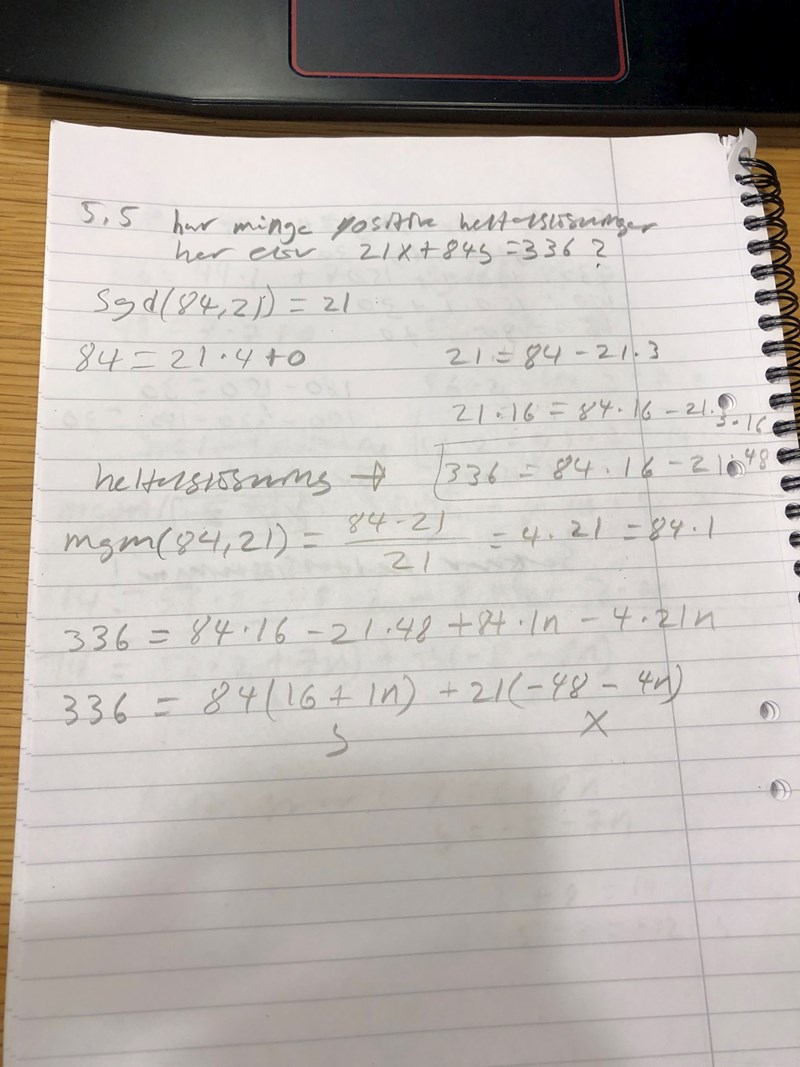 5.5 hur många positiva heltalslösningar
har ekv 21x + 84y = 336 ?
Sgd(84,21) = 21
84 = 21·4 + 0
21 = 84 - 21·3
21·16 = 84·16 - 21·3·16
heltalslösning → 336 = 84·16 - 21·48
mgm(84,21) = 84·21/21 = 4·21 = 84·1
336 = 84·16 - 21·48 + 84·1n - 4·21n
336 = 84(16 + 1n) + 21(-48 - 4n)
y x